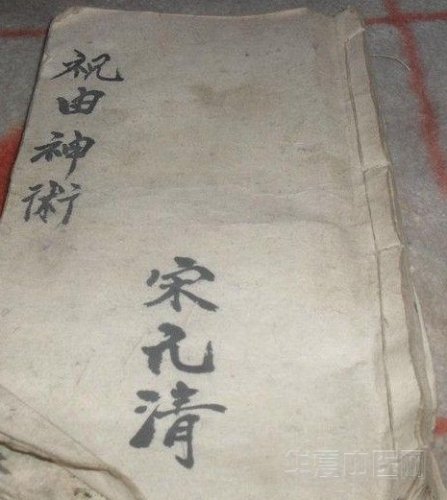 祝由神術
宋元清
华夏中医网